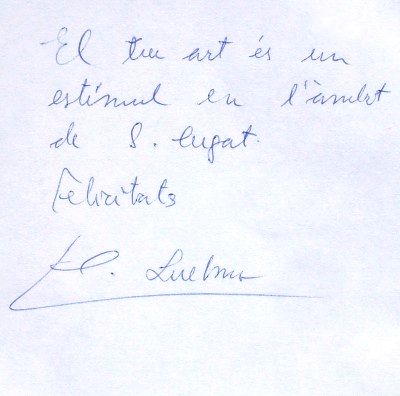 El teu art és un
estímul en l'àmbit
de S. Cugat.
Felicitats